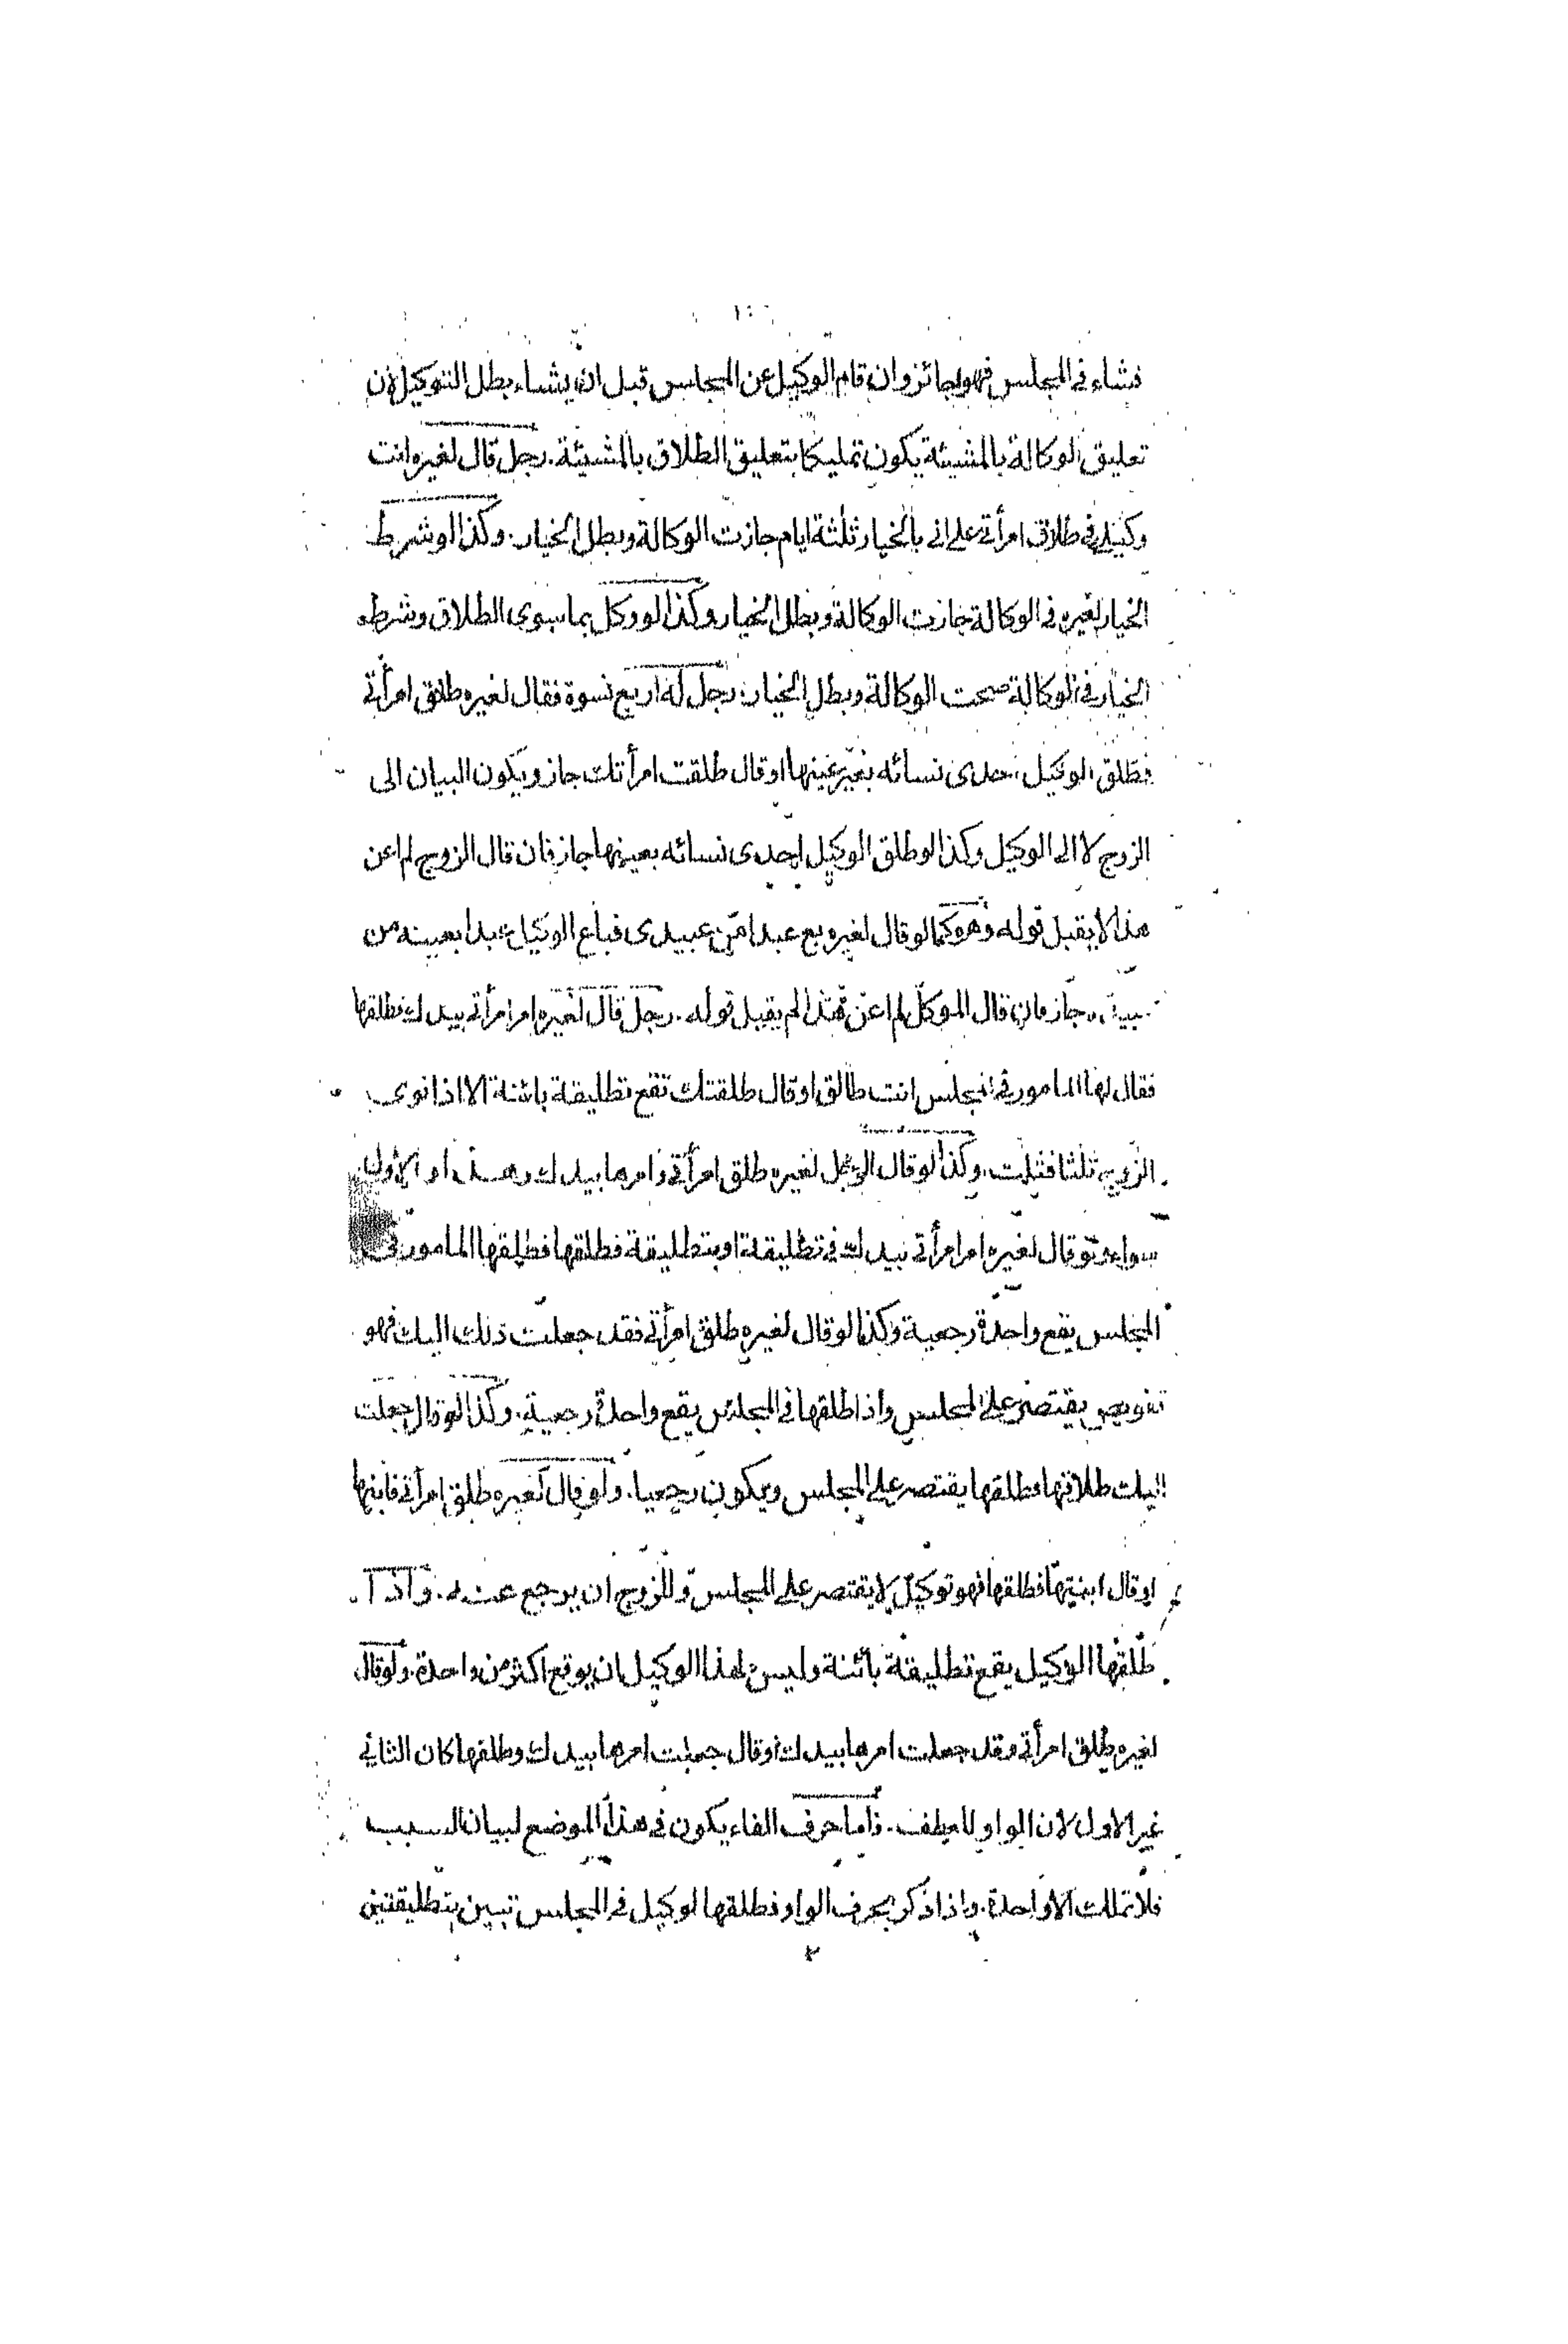 فشاء في المجلس فهو جائز وان قام الوكيل عن المجلس قبل ان يشاء بطل التوكيل لان
تعليق الوكالة بالمشيئة يكون تمليكا بتعليق الطلاق بالمشيئة . رجل قال لغيره انت
وكيلي في طلاق امرأتي على اني بالخيار ثلثة ايام جازت الوكالة وبطل الخيار . وكذا لو شرط
الخيار لغيره في الوكالة جازت الوكالة وبطل الخيار وكذا لو وكل بما سوى الطلاق وشرط
الخيار في الوكالة صحت الوكالة وبطل الخيار . رجل له اربع نسوة فقال لغيره طلق امرأتي
فطلق الوكيل احدى نسائه بغير عينها او قال طلقت امرأتك جاز ويكون البيان الى
الزوج لا الى الوكيل وكذا لو طلق الوكيل احدى نسائه بعينها جاز فان قال الزوج لم اعن
هذا لا يقبل قوله وهو كما لو قال لغيره بع عبدا من عبيدى فباع الوكيل عبدا بعينه من
عبيده جاز فان قال الموكل لم اعن هذا لم يقبل قوله . رجل قال لغيره امر امرأتي بيدك فطلقها
فقال لها المامور في المجلس انت طالق او قال طلقتك تقع تطليقة بائنة الا اذا نوى
الزوج ثلثا فثلث . وكذا لو قال الرجل لغيره طلق امرأتي وامرها بيدك وهذا والاول
سواء ولو قال لغيره امر امرأتي بيدك في تطليقة او بتطليقة فطلقها فطلقها المامور في
المجلس يقع واحدة رجعية وكذا لو قال لغيره طلق امرأتي فقد جعلت ذلك اليك فهو
تفويض يقتصر على المجلس واذا طلقها في المجلس يقع واحدة رجعية . وكذا لو قال جعلت
اليك طلاقها فطلقها يقتصر على المجلس ويكون رجعيا . ولو قال لغيره طلق امرأتي فابنها
او قال ابنيتها فطلقها فهو توكيل لا يقتصر على المجلس وللزوج ان يرجع عنه . واذا
طلقها الوكيل يقع تطليقة بائنة وليس لهذا الوكيل ان يوقع اكثر من واحدة . ولو قال
لغيره طلق امرأتي وقد جعلت امرها بيدك او قال جعلت امرها بيدك وطلقها كان الثاني
غير الاول لان الواو للعطف . فاما حرف الفاء يكون في هذا الموضع لبيان السبب
فلا تملك الا واحدة . واذا ذكر بحرف الواو فطلقها لوكيل في المجلس تبين بتطليقتين